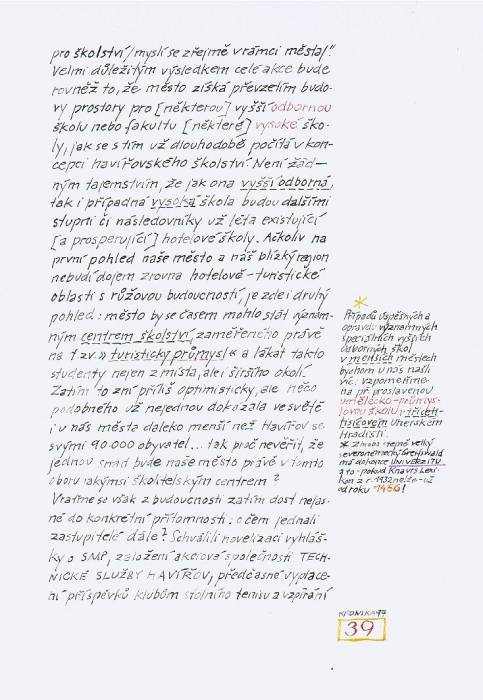 pro školství/myslí se zřejmě v rámci města/."
Velmi důležitým výsledkem celé akce bude
rovněž to, že město získá převzetím budo-
vy prostory pro [některou] vyšší odbornou
školu nebo fakultu [některé] vysoké ško-
ly, jak se s tím už dlouhodobě počítá v kon-
cepci havířovského školství. Není žád-
ným tajemstvím, že jak ona vyšší odborná,
tak i případná vysoká škola budou dalšími
stupni či následovníky už léta existující
[a prosperující] hotelové školy. Ačkoliv na
první pohled naše město a náš blízký region
nebudí dojem zrovna hotelově-turistické
oblasti s růžovou budoucností, je zde i druhý
pohled: město by se časem mohlo stát význam-
ným centrem školství, zaměřeného právě
na tzv. »turistický průmysl« a lákat takto
studenty nejen z místa, ale i širšího okolí.
Zatím to zní příliš optimisticky, ale něco
podobného už nejednou dokázala ve světě
i u nás města daleko menší než Havířov se
svými 90.000 obyvatel... tak proč nevěřit, že
jednou snad bude naše město právě v tomto
oboru jakýmsi školitelským centrem?
Vraťme se však z budoucnosti zatím dost nejas-
né do konkrétní přítomnosti: o čem jednali
zastupitelé dále? Schválili novelizaci vyhláš-
ky o SMP, založení akciové společnosti TECH-
NICKÉ SLUŽBY HAVÍŘOV, předčasné vyplace-
ní příspěvků klubům stolního tenisu a vzpírání
*
Případů úspěšných a
opravdu významných
speciálních vyšších
odborných škol
v menších městech
bychom u nás našli
víc: vzpomeňme
na př. proslavenou
umělecko-průmys-
lovou školu v třiceti-
tisícovém Uherském
Hradišti.
* Zhruba stejně velký
severoněmecký Greifswald
má dokonce UNIVERZITU
a to - pokud Knaurs Lexi-
kon z r. 1932 nelže - už
od roku 1456!
KRONIKA 97
39